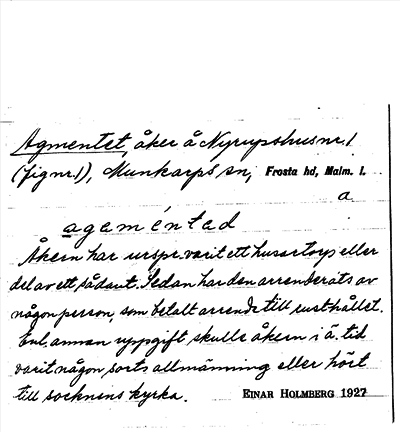 Agmentet, åker å Nyrupshus nr. 1
(fig nr. 1), Munkarps sn, Frosta hd, Malm. l.
a.
agaméntad
Åkern har urspr. varit ett husartorp eller
del av ett sådant. Sedan har den arrenderats av
någon person, som betalt arrende till rusthållet.
Enl. annan uppgift skulle åkern i ä. tid
varit någon sorts allmänning eller hört
till socknens kyrka. EINAR HOLMBERG 1927